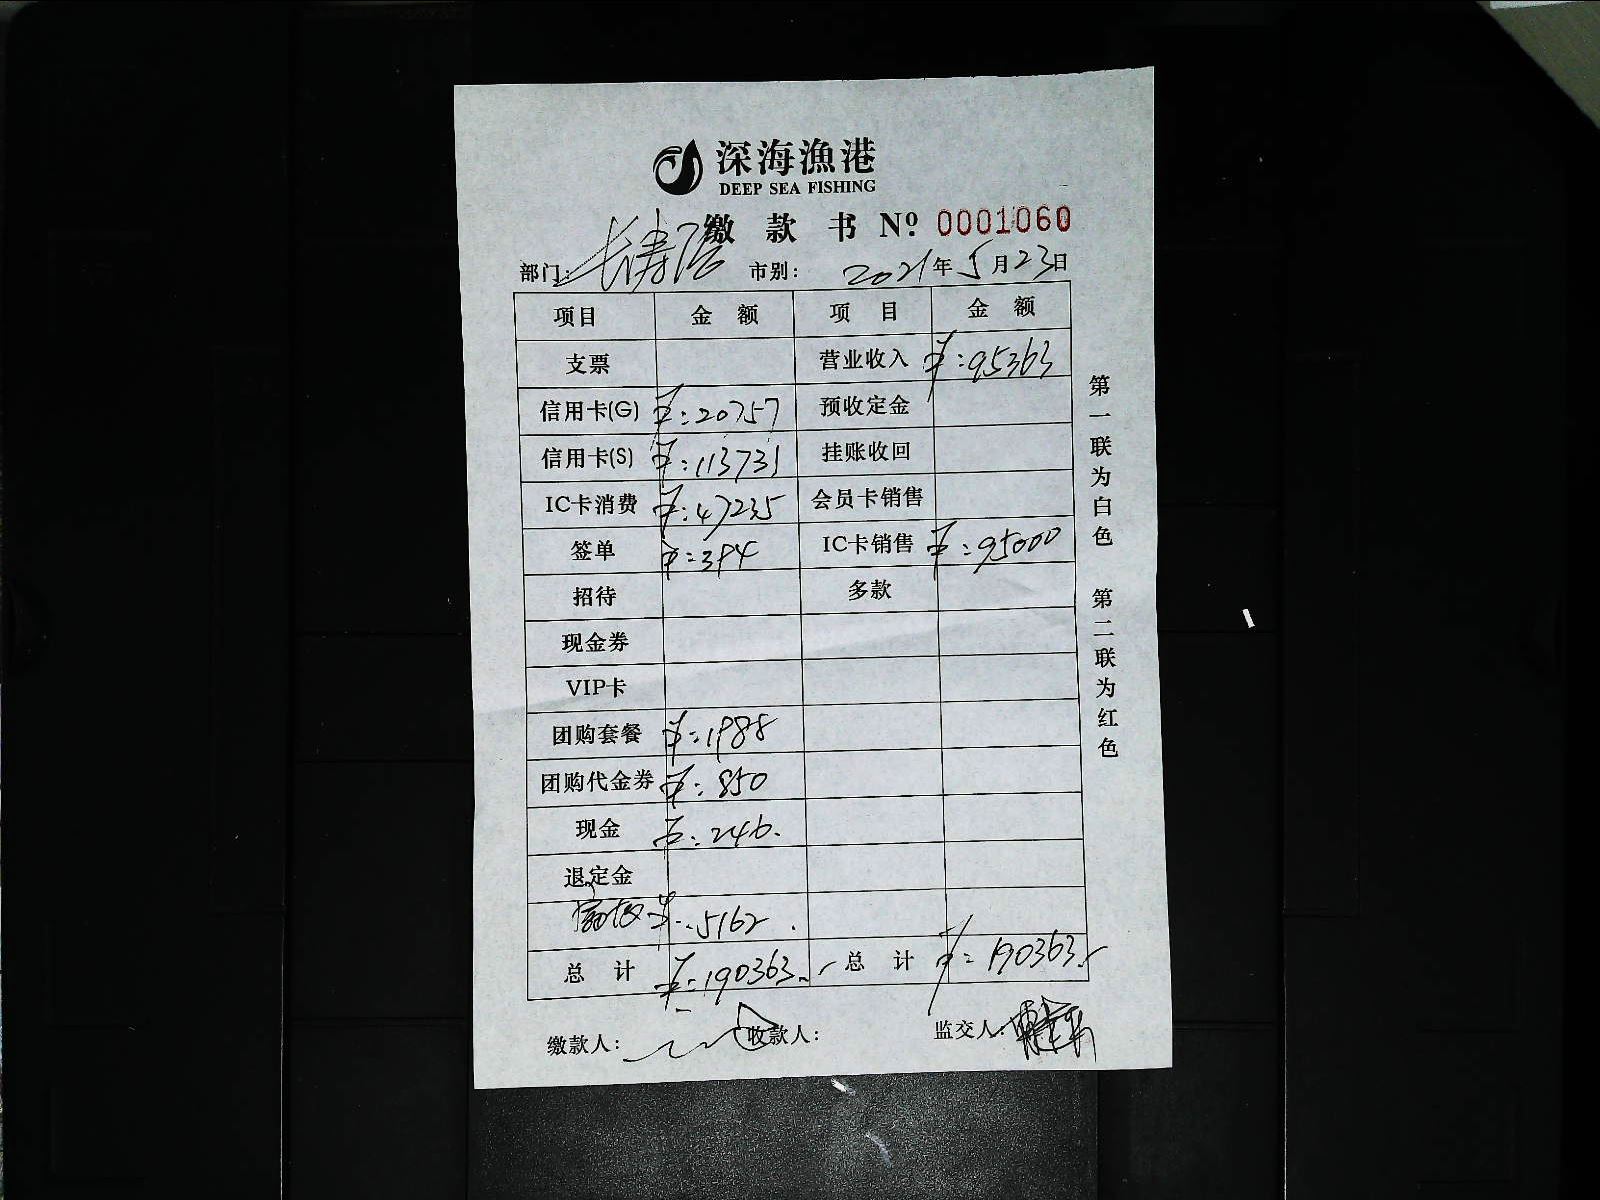 深海漁港
DEEP SEA FISHING
缴款书 Nº 0001060
部门: 长寿店 市别: 2021年5月23日
项目 金额 项目 金额
支票 营业收入 ¥:95363
信用卡(G) ¥:20757 预收定金
信用卡(S) ¥:113731 挂账收回
IC卡消费 ¥:47235 会员卡销售
签单 ¥:394 IC卡销售 ¥:95000
招待 多款
现金券
VIP卡
团购套餐 ¥:1988
团购代金券 ¥:850
现金 ¥:246.
退定金
¥:5162.
总计 ¥:190363. 总计 ¥:190363.
缴款人: 收款人: 监交人:
第一联为白色 第二联为红色